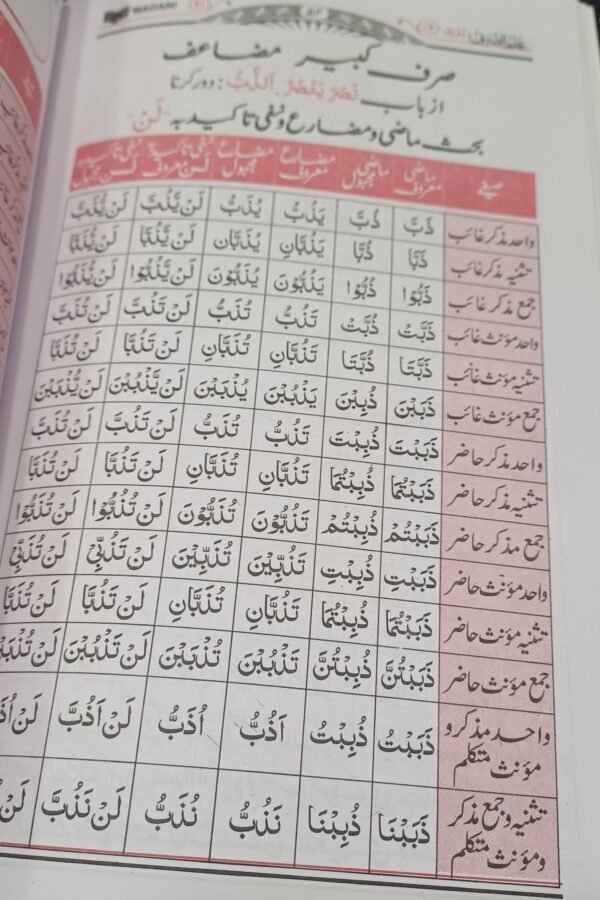 علم الصرف
۵۱۳
MADANI
صرف کبیر مضاعف
از باب نَصَرَ یَنْصُرُ۔ اَلذَّبُّ: دور کرنا
بحث ماضی و مضارع و نفی تاکید بہ "لَنْ"
صیغے ماضی معروف ماضی مجہول مضارع معروف مضارع مجہول نفی تاکید بہ لن معروف نفی تاکید بہ لن مجہول
واحد مذکر غائب ذَبَّ ذُبَّ یَذُبُّ یُذَبُّ لَنْ یَّذُبَّ لَنْ یُّذَبَّ
تثنیہ مذکر غائب ذَبَّا ذُبَّا یَذُبَّانِ یُذَبَّانِ لَنْ یَّذُبَّا لَنْ یُّذَبَّا
جمع مذکر غائب ذَبُّوْا ذُبُّوْا یَذُبُّوْنَ یُذَبُّوْنَ لَنْ یَّذُبُّوْا لَنْ یُّذَبُّوْا
واحد مؤنث غائب ذَبَّتْ ذُبَّتْ تَذُبُّ تُذَبُّ لَنْ تَذُبَّ لَنْ تُذَبَّ
تثنیہ مؤنث غائب ذَبَّتَا ذُبَّتَا تَذُبَّانِ تُذَبَّانِ لَنْ تَذُبَّا لَنْ تُذَبَّا
جمع مؤنث غائب ذَبَبْنَ ذُبِبْنَ یَذْبُبْنَ یُذْبَبْنَ لَنْ یَّذْبُبْنَ لَنْ یُّذْبَبْنَ
واحد مذکر حاضر ذَبَبْتَ ذُبِبْتَ تَذُبُّ تُذَبُّ لَنْ تَذُبَّ لَنْ تُذَبَّ
تثنیہ مذکر حاضر ذَبَبْتُمَا ذُبِبْتُمَا تَذُبَّانِ تُذَبَّانِ لَنْ تَذُبَّا لَنْ تُذَبَّا
جمع مذکر حاضر ذَبَبْتُمْ ذُبِبْتُمْ تَذُبُّوْنَ تُذَبُّوْنَ لَنْ تَذُبُّوْا لَنْ تُذَبُّوْا
واحد مؤنث حاضر ذَبَبْتِ ذُبِبْتِ تَذُبِّیْنَ تُذَبِّیْنَ لَنْ تَذُبِّیْ لَنْ تُذَبِّیْ
تثنیہ مؤنث حاضر ذَبَبْتُمَا ذُبِبْتُمَا تَذُبَّانِ تُذَبَّانِ لَنْ تَذُبَّا لَنْ تُذَبَّا
جمع مؤنث حاضر ذَبَبْتُنَّ ذُبِبْتُنَّ تَذْبُبْنَ تُذْبَبْنَ لَنْ تَذْبُبْنَ
واحد مذکر و ذَبَبْتُ ذُبِبْتُ اَذُبُّ اُذَبُّ لَنْ اَذُبَّ
مؤنث متکلم
تثنیہ و جمع مذکر ذَبَبْنَا ذُبِبْنَا نَذُبُّ نُذَبُّ لَنْ نَذُبَّ لَنْ
و مؤنث متکلم